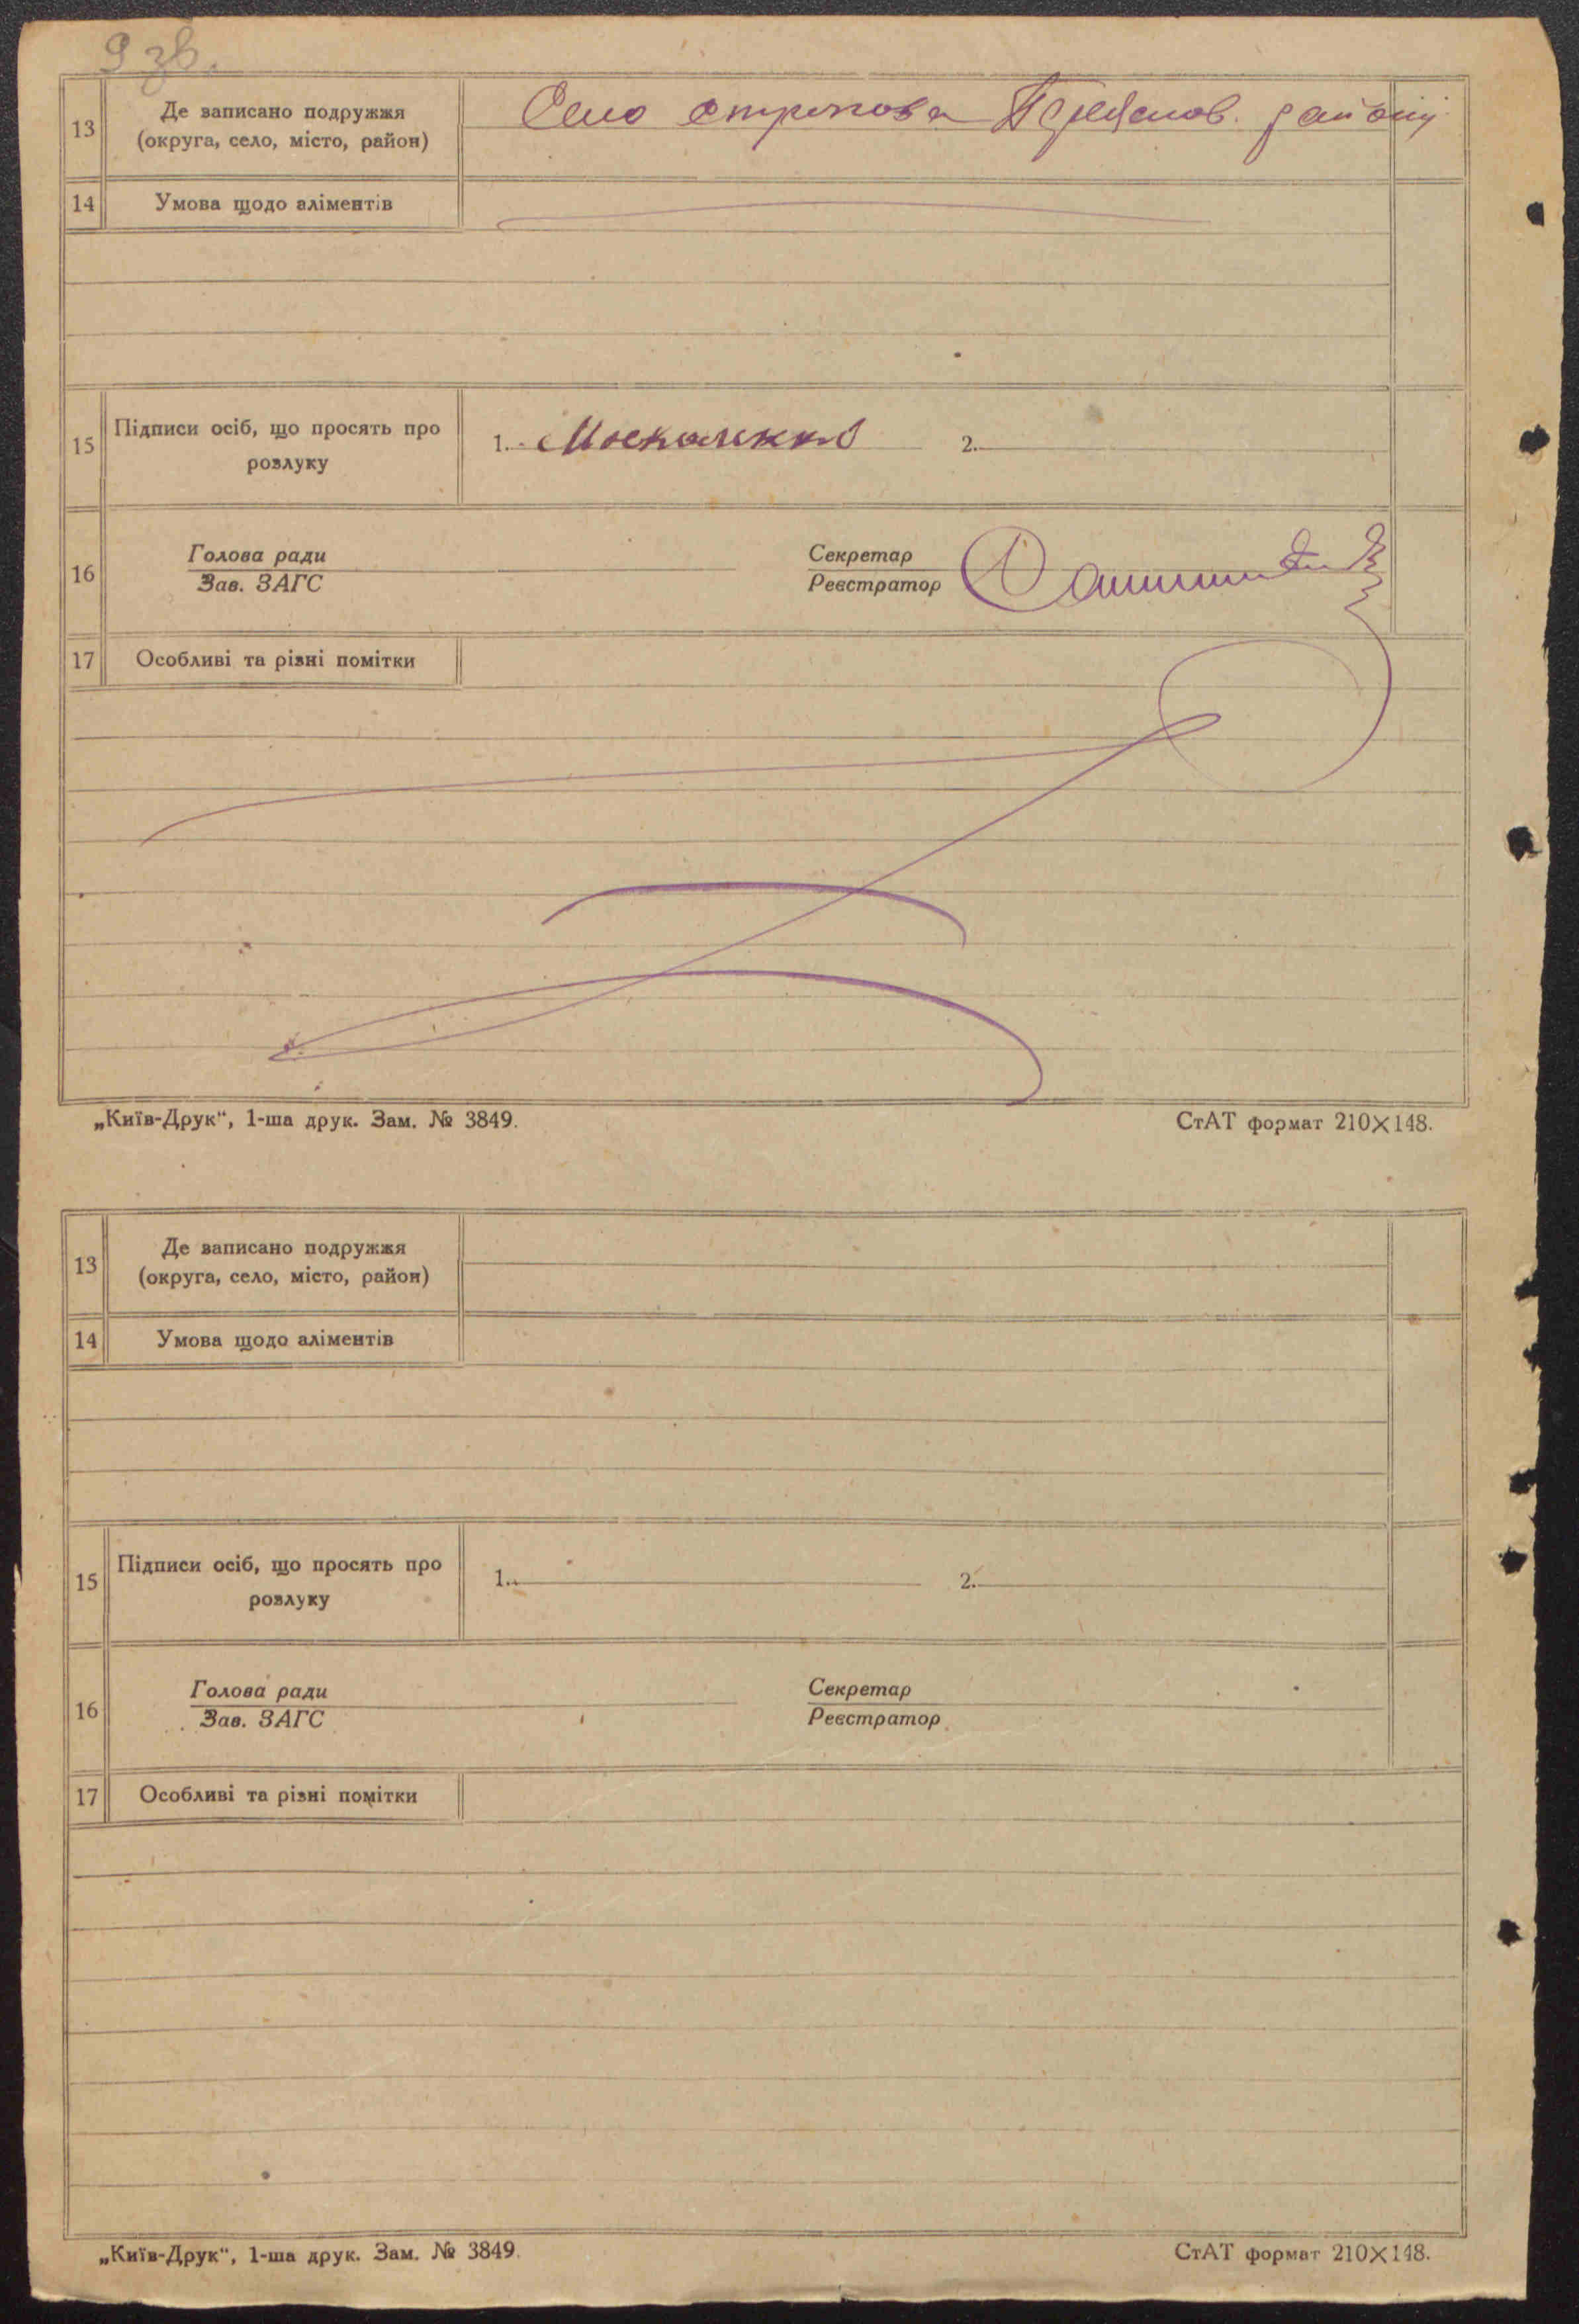 9 зв.
13 Де записано подружжя
(округа, село, місто, район)
Село
14 Умова щодо аліментів
15 Підписи осіб, що просять про
розлуку
1. Москаленко 2.
16 Голова ради
Зав. ЗАГС
Секретар
Реєстратор
17 Особливі та різні помітки
„Київ-Друк“, 1-ша друк. Зам. № 3849. СтАТ формат 210×148.
13 Де записано подружжя
(округа, село, місто, район)
14 Умова щодо аліментів
15 Підписи осіб, що просять про
розлуку
1. 2.
16 Голова ради
Зав. ЗАГС
Секретар
Реєстратор
17 Особливі та різні помітки
„Київ-Друк“, 1-ша друк. Зам. № 3849. СтАТ формат 210×148.